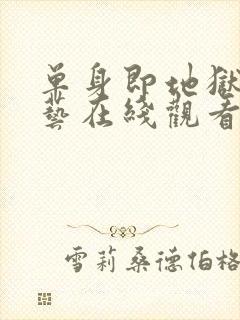 單身即地獄
藝在綫觀看
雪莉桑德伯格